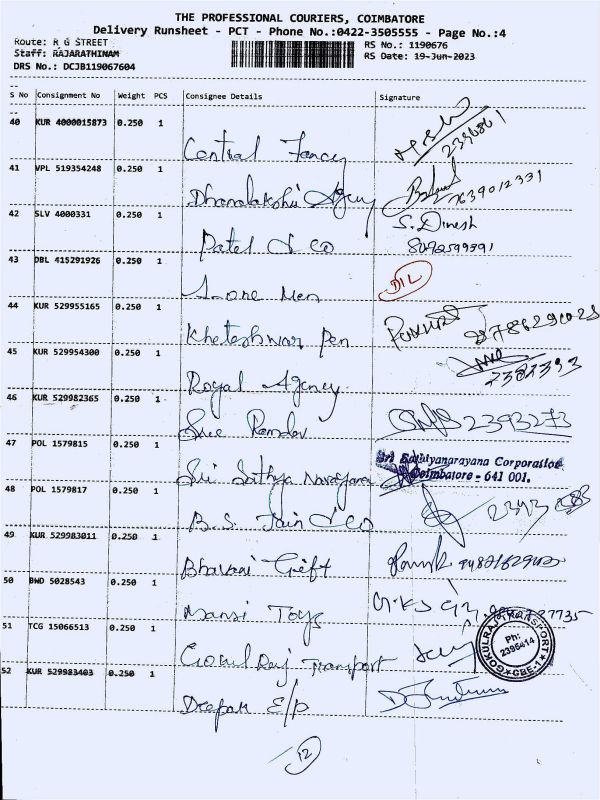 THE PROFESSIONAL COURIERS, COIMBATORE
Delivery Runsheet - PCT - Phone No.:0422-3505555 - Page No.:4
Route: R G STREET RS No.: 1190676
Staff: RAJARATHINAM RS Date: 19-Jun-2023
DRS No.: DCJB119067604
S No Consignment No Weight PCS Consignee Details Signature
40 KUR 4000015873 0.250 1
Central Fancy
41 VPL 519354248 0.250 1
Dhanalakshmi Agency
42 SLV 4000331 0.250 1 S. Dinesh
Patel & Co
43 DBL 415291926 0.250 1 DIL
Men
44 KUR 529955165 0.250 1
Kheteshwar Pen
45 KUR 529954300 0.250 1
Royal Agency
46 KUR 529982365 0.250 1 2393273
Sree
47 POL 1579815 0.250 1 Sri Sathiyanarayana Corporation
Coimbatore - 641 001.
Sri Sathya Narayana
48 POL 1579817 0.250 1
B.S. Jain & Co
49 KUR 529983011 0.250 1
Bhavani Gift
50 BWD 5028543 0.250 1
Mansi Toys
51 TCG 15066513 0.250 1 GOKULRAJ TRANSPORT
Ph: 2396414
CBE-1
Gokul Raj Transport
52 KUR 529983403 0.250 1
Deepak E/P
12